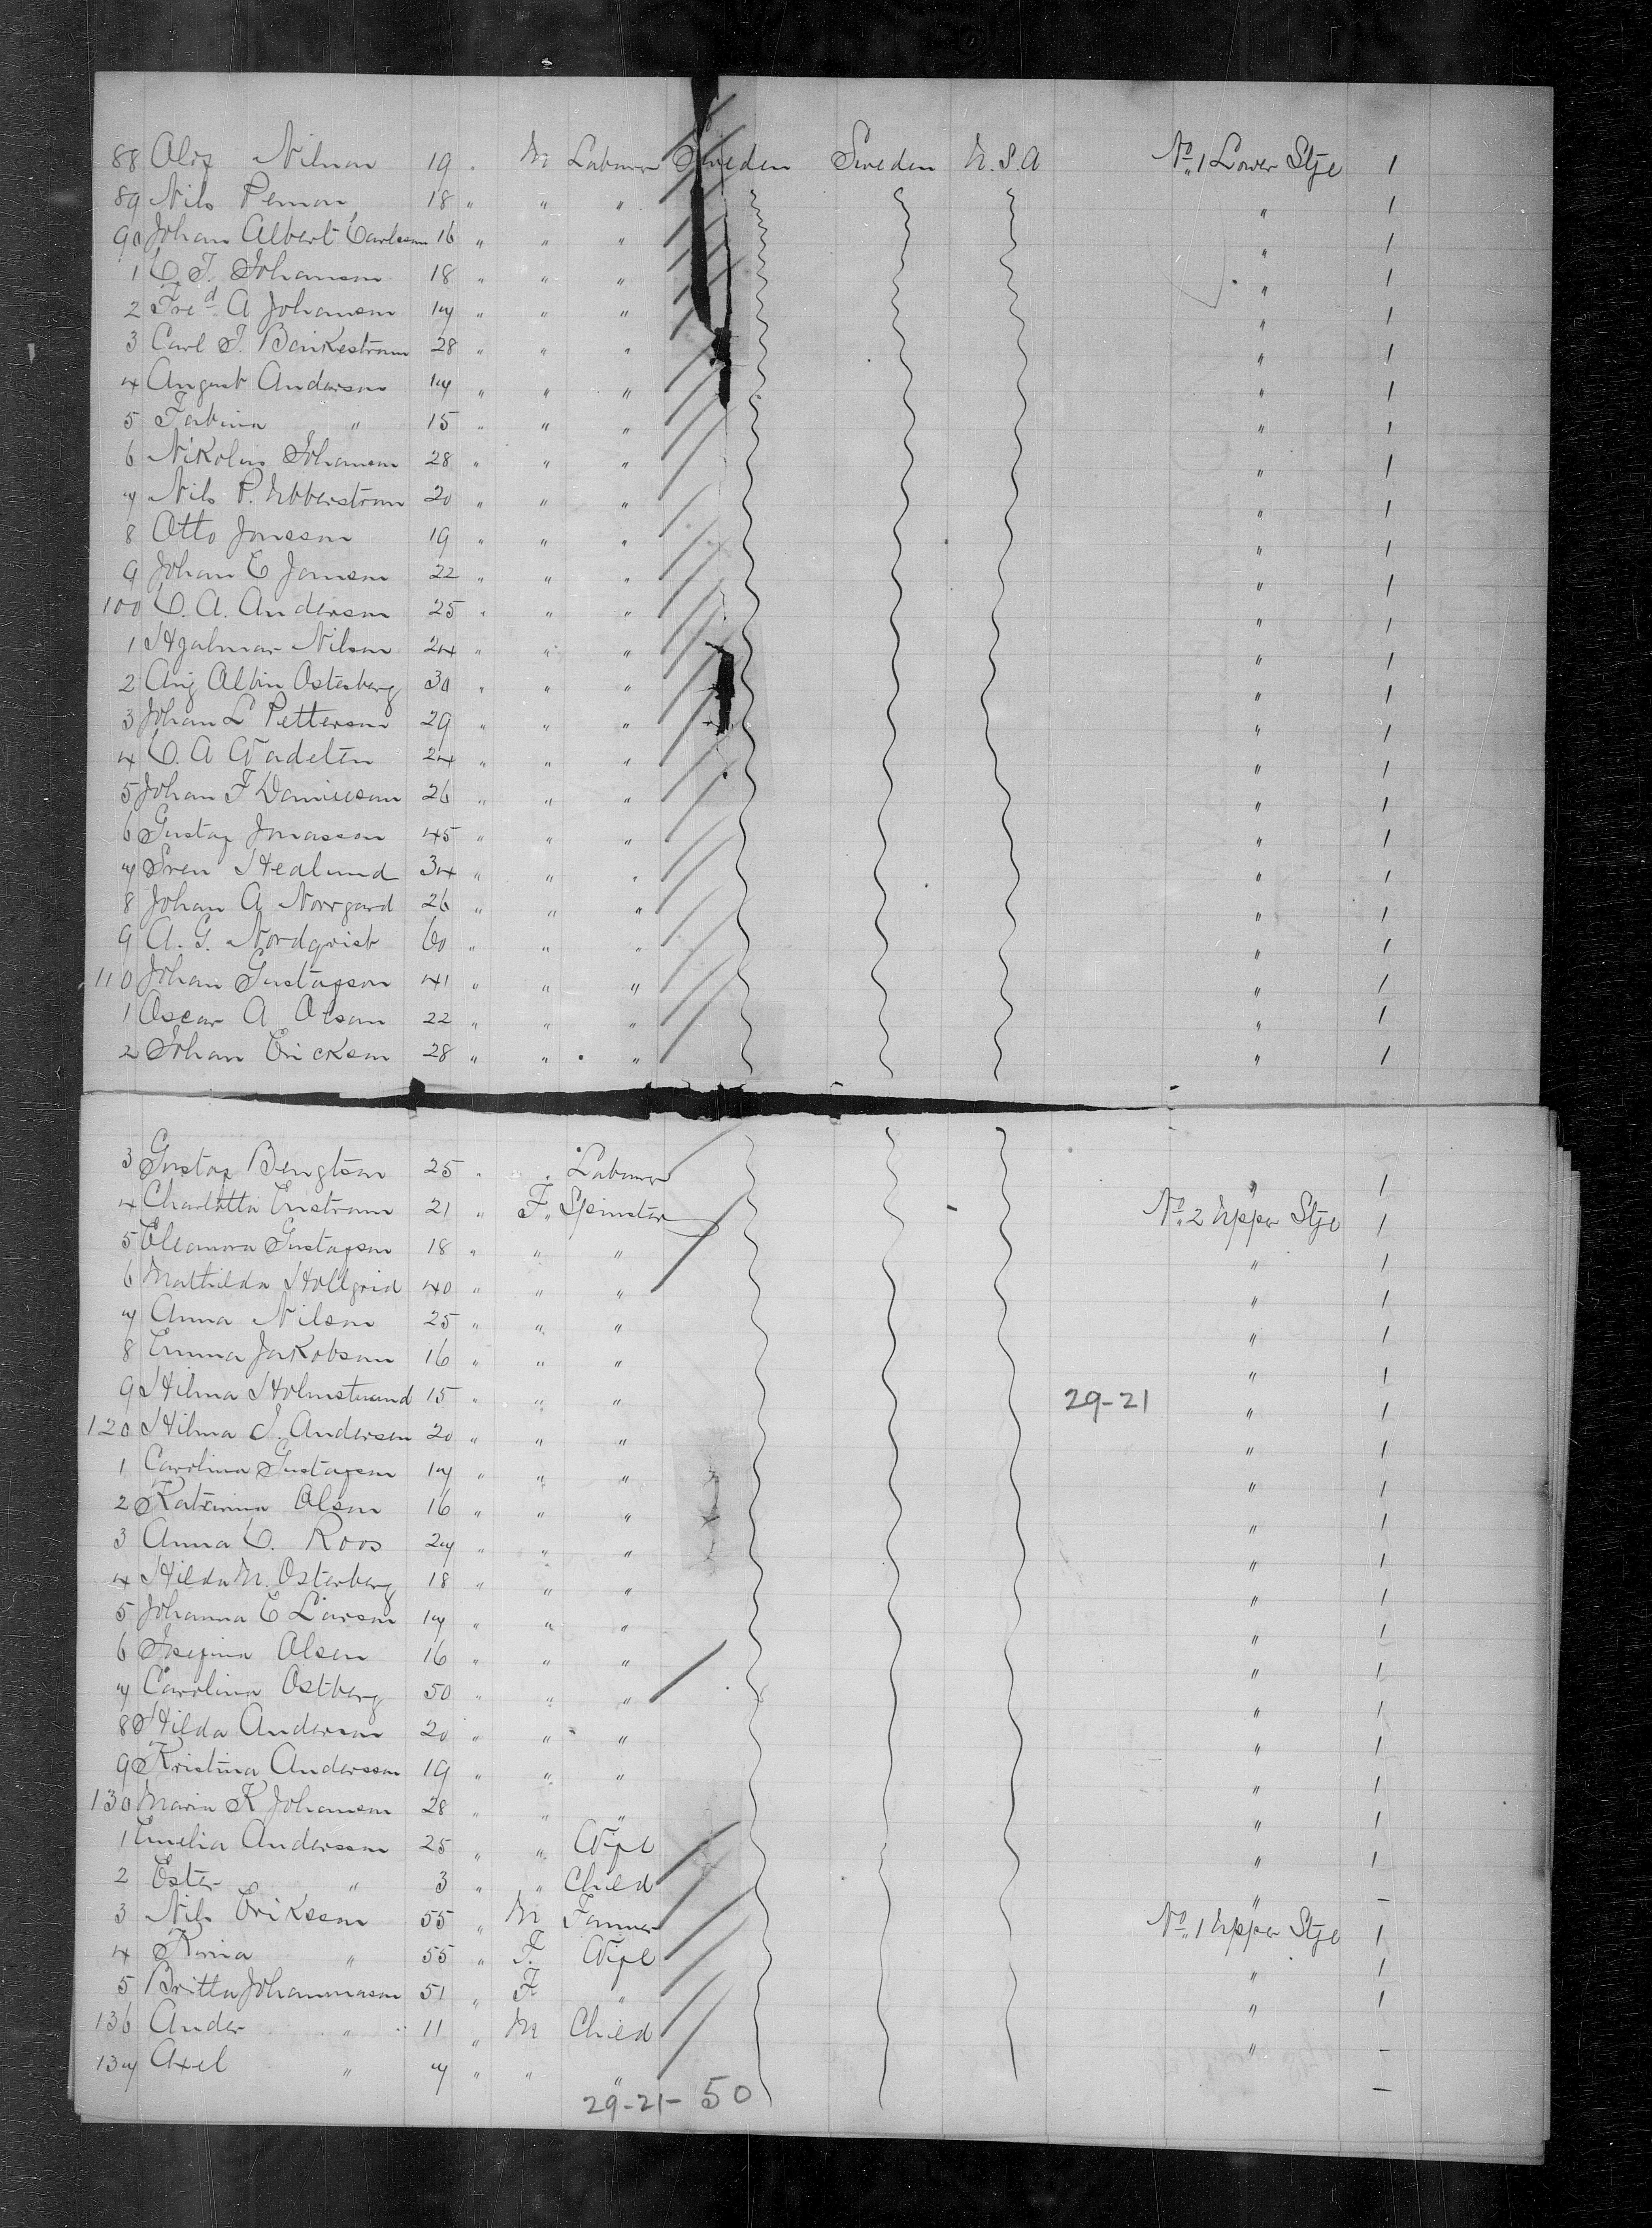 88 Olof Nilson 19 " M Labourer Sweden Sweden U.S.A No. 1 Lower Stge 1
89 Nils Person 18 " " " " 1
90 Johan Albert Carlsson 16 " " " " 1
1 C. J. Johanson 18 " " " " 1
2 Fred A Johanson 17 " " " " 1
3 Carl J. 28 " " " " 1
4 August Anderson 17 " " " " 1
5 " 15 " " " " 1
6 Johanson 28 " " " " 1
7 Nils P. 20 " " " " 1
8 Otto Jonsson 19 " " " " 1
9 Johan C 22 " " " " 1
100 C. A. Anderson 25 " " " " 1
1 Hjalmar Nilson 24 " " " " 1
2 Aug Albin Osterberg 30 " " " " 1
3 Johan L Petterson 29 " " " " 1
4 C. A 24 " " " " 1
5 Johan F 26 " " " " 1
6 Gustaf Jonasson 45 " " " " 1
7 Sven Hedlund 34 " " " " 1
8 Johan A Norrgard 26 " " " " 1
9 A. G. Nordqvist 60 " " " " 1
110 Johan Gustafson 41 " " " " 1
1 Oscar A Olson 22 " " " " 1
2 Johan Erickson 28 " " " " 1
3 Gustaf Bengtson 25 " " Labourer " 1
4 Charlotta Enstrom 21 " F. Spinster No. 2 Upper Stge 1
5 Eleanora Gustafson 18 " " " " 1
6 Mathilda 40 " " " " 1
7 Anna Nilson 25 " " " " 1
8 Emma Jakobson 16 " " " " 1
9 Hilma Holmstrand 15 " " " 29-21 " 1
120 Hilma S. Anderson 20 " " " " 1
1 Carolina Gustafson 17 " " " " 1
2 Katrina Olson 16 " " " " 1
3 Anna C. Roos 27 " " " " 1
4 Hilda M. Osterberg 18 " " " " 1
5 Johanna C Larson 17 " " " " 1
6 Josefina Olsen 16 " " " " 1
7 Carolina Ostberg 50 " " " " 1
8 Hilda Anderson 20 " " " " 1
9 Kristina Andersson 19 " " " " 1
130 Maria K Johanson 28 " " " " 1
1 Emelia Andersson 25 " " Wife " 1
2 Ester " 3 " " Child " –
3 Nils Eriksson 55 " M Farmer No. 1 Upper Stge 1
4 " 55 " F. Wife " 1
5 Britta Johannason 51 " F " " 1
136 Ander " 11 " M Child " –
137 Axel " 7 " " " –
29-21-50